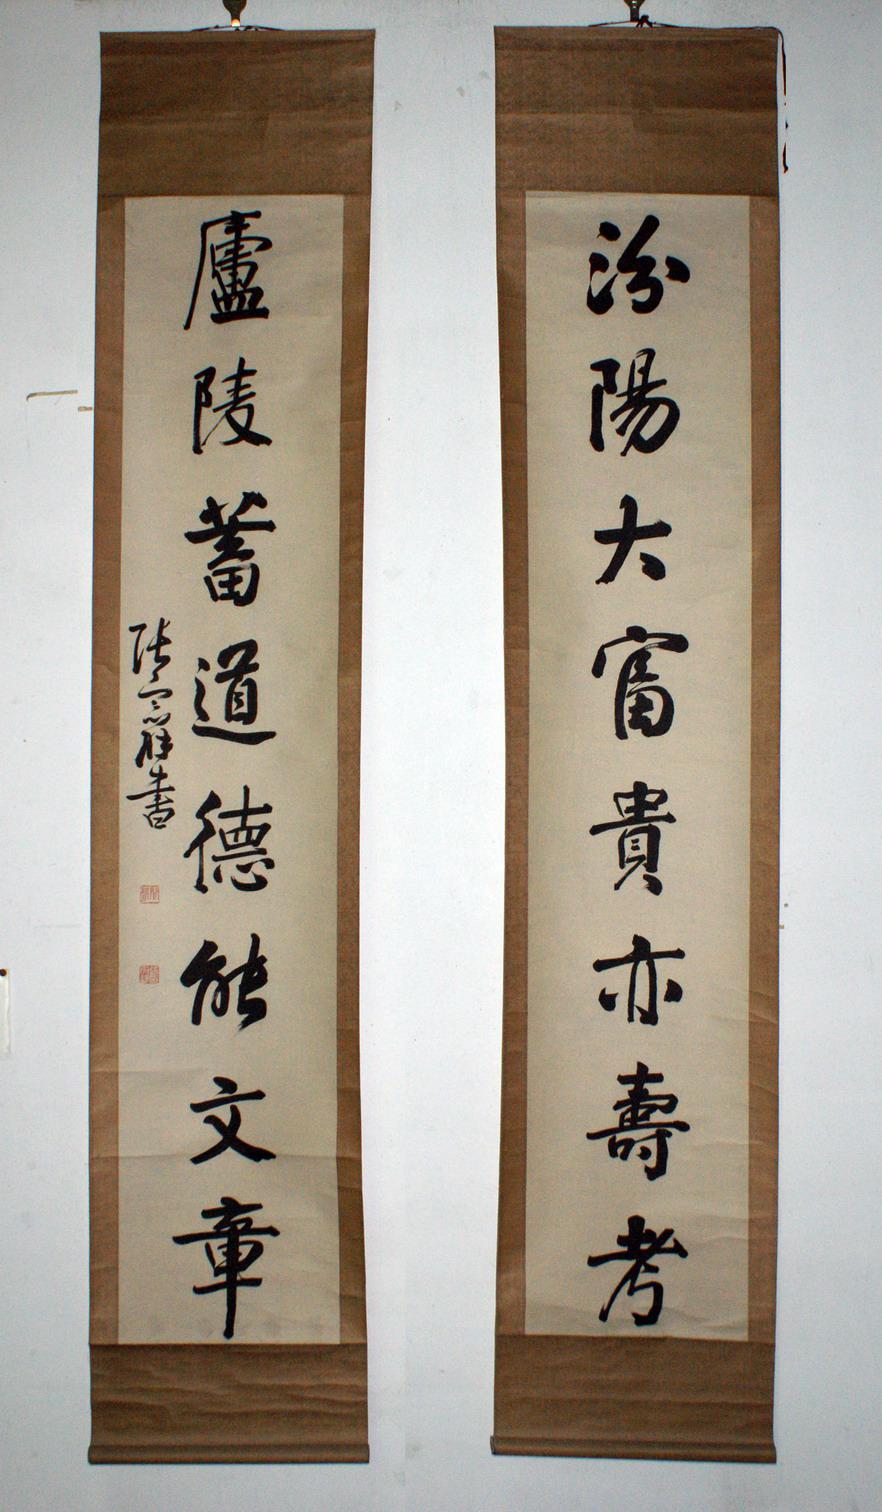 汾陽大富貴亦壽考
廬陵蓄道德能文章
張宗祥書